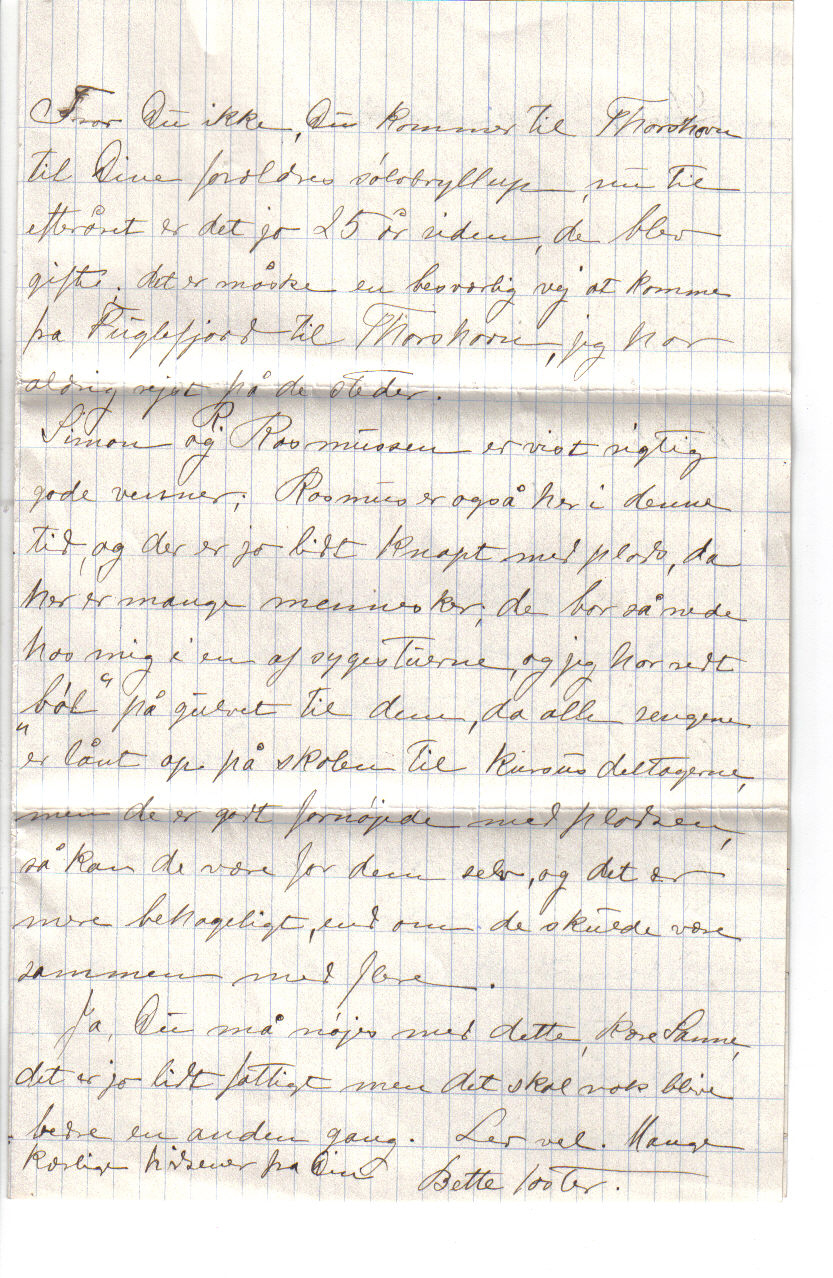 Tror Du ikke, Du kommer til Thorshavn
til Dine forældres sølvbryllup, nu til
efteråret er det jo 25 år siden, de blev
gifte; det er måske en besværlig vej at komme
fra Fuglefjord til Thorshavn, jeg har
aldrig rejst på de steder.
Simon og R. Rasmussen er vist rigtig
gode venner; Rasmus er også her i denne
tid, og der er jo lidt knapt med plads, da
her er mange mennesker; de bor så nede
hos mig i en af sygestuerne, og jeg har redt
"ból" på gulvet til dem, da alle sengene
er lånt op på skolen til kursusdeltagerne,
men de er godt fornøjede med pladsen,
så kan de være for dem selv, og det er
mere behageligt, end om de skulde være
sammen med flere.
Ja, Du må nøjes med dette, kære Sanne,
det er jo lidt fattigt men det skal nok blive
bedre en anden gang. Lev vel. Mange
kærlige hilsener fra Din
Bette faster.